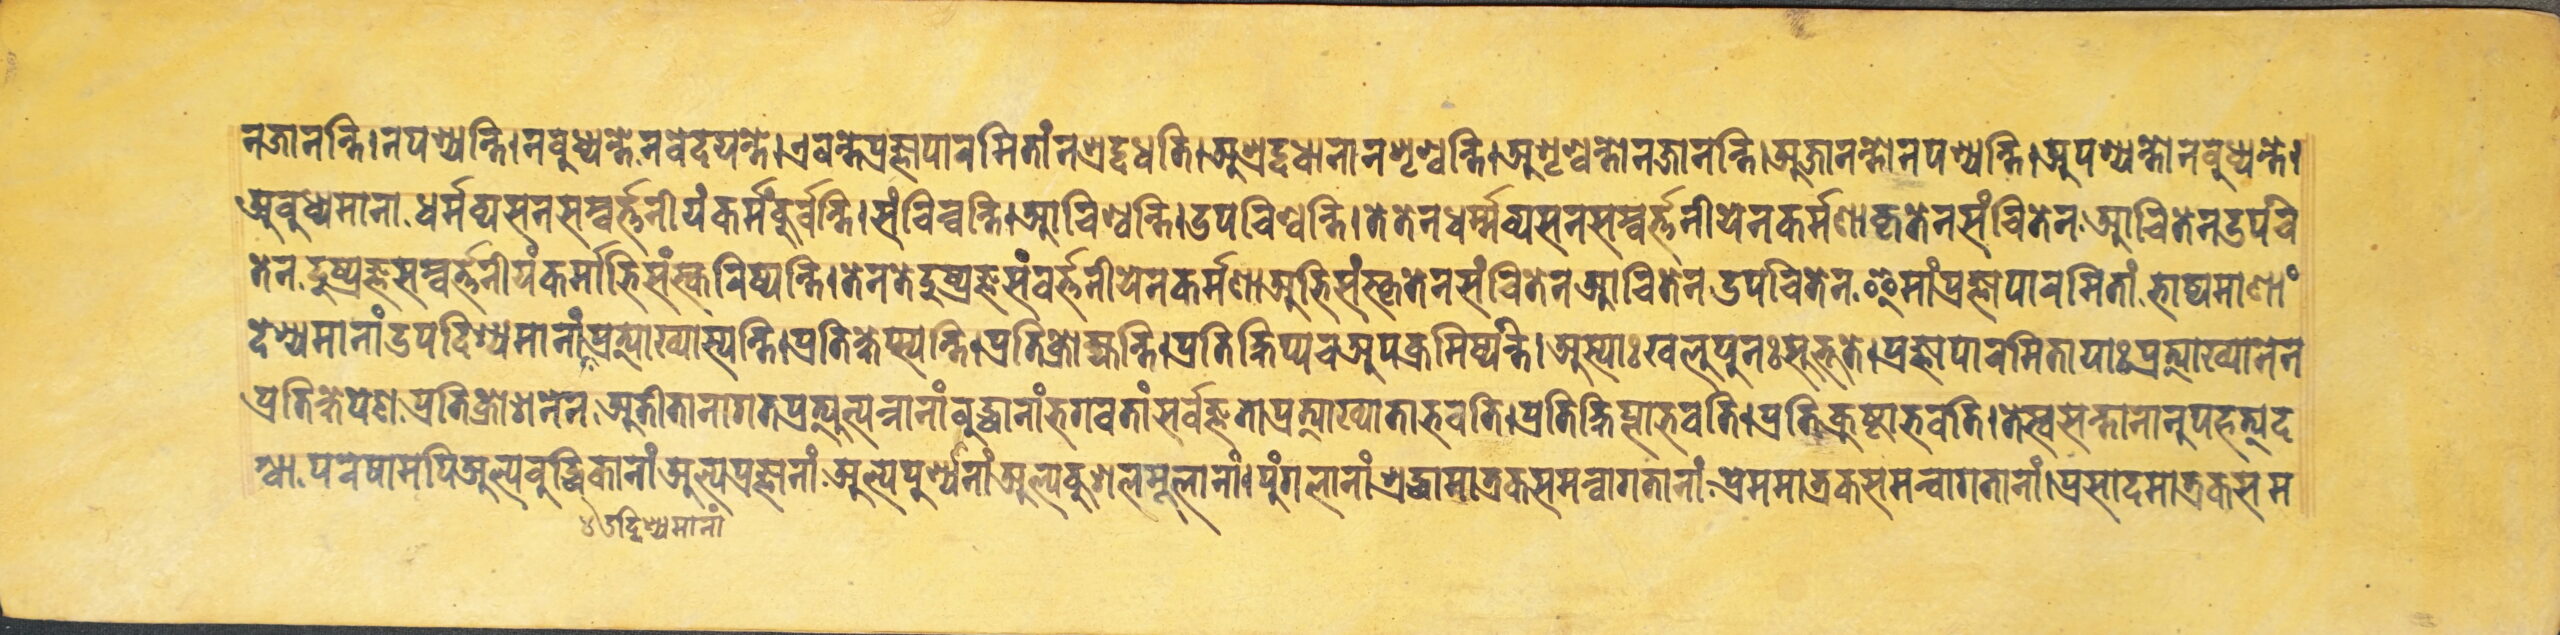 नजानन्ति।नपश्यन्ति।नबुध्यन्तेनवेदयन्ते।एवन्तेप्रज्ञापारमितांनश्रद्दधति।अश्रद्दधानानशृण्वन्ति।अशृण्वन्तोनजानन्ति।अजानन्तोनपश्यन्ति।अपश्यन्तोनबुध्यन्ते।
अबुध्यमानाधर्मव्यसनसम्वर्त्तनीयंकर्मकुर्वन्ति।संचिन्वन्ति।आचिण्वन्ति।उपचिण्वन्ति।तेतेनधर्म्मव्यसनसम्वर्त्तनीयेनकर्मणाकृतेनसंचितेनआचितेनउपचि
तेनदुष्प्रज्ञसम्वर्त्तनीयंकर्माभिसंस्करिष्यन्ति।तेनतेदुष्प्रज्ञसंवर्त्तनीयेनकर्मणाअभिसंस्कृतेनसंचितेनआचितेनउपचितेनइमांप्रज्ञापारमितांभाष्यमाणां
देश्यमानांउपदिश्यमानांप्रत्याख्यास्यन्ति।प्रतिक्षेप्स्यन्ति।प्रतिक्रोक्ष्यन्ति।प्रतिक्षिप्यचअपक्रमिष्यन्ति।अस्याःखलुपुनःसुभूते।प्रज्ञापारमितायाःप्रत्याख्यानेन
प्रतिक्षेपेणप्रतिक्रोशनेनअतीतानागतप्रत्युत्पन्नानांबुद्धानांभगवतांसर्वज्ञताप्रत्याख्याताभवति।प्रतिक्षिप्ताभवति।प्रतिक्रुष्टाभवति।तेस्वसन्तानानुपहत्यद
ग्ध्वापरेषामपिअल्पबुद्धिकानांअल्पप्रज्ञानांअल्पपुण्यानांअल्पकुशलमूलानां।पुंगलानांश्रद्धामात्रकसमन्वागतानांप्रेममात्रकसमन्वागतानां।प्रसादमात्रकसम
४उदिश्यमानां